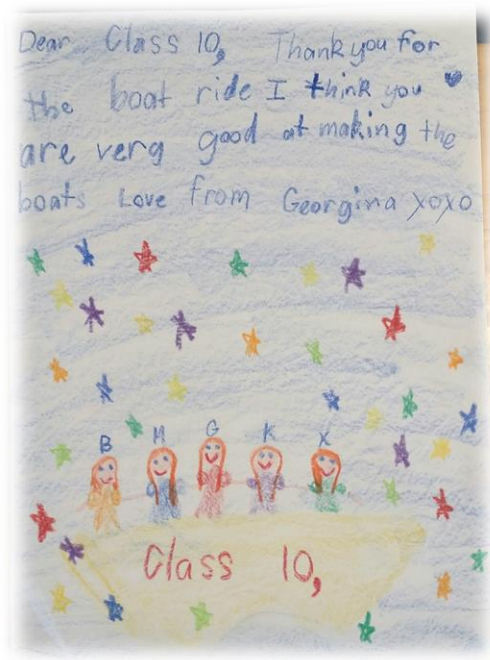 Dear Class 10, Thank you for
the boat ride I think you
are very good at making the
boats Love from Georgina xoxo
B H G K X
Class 10,